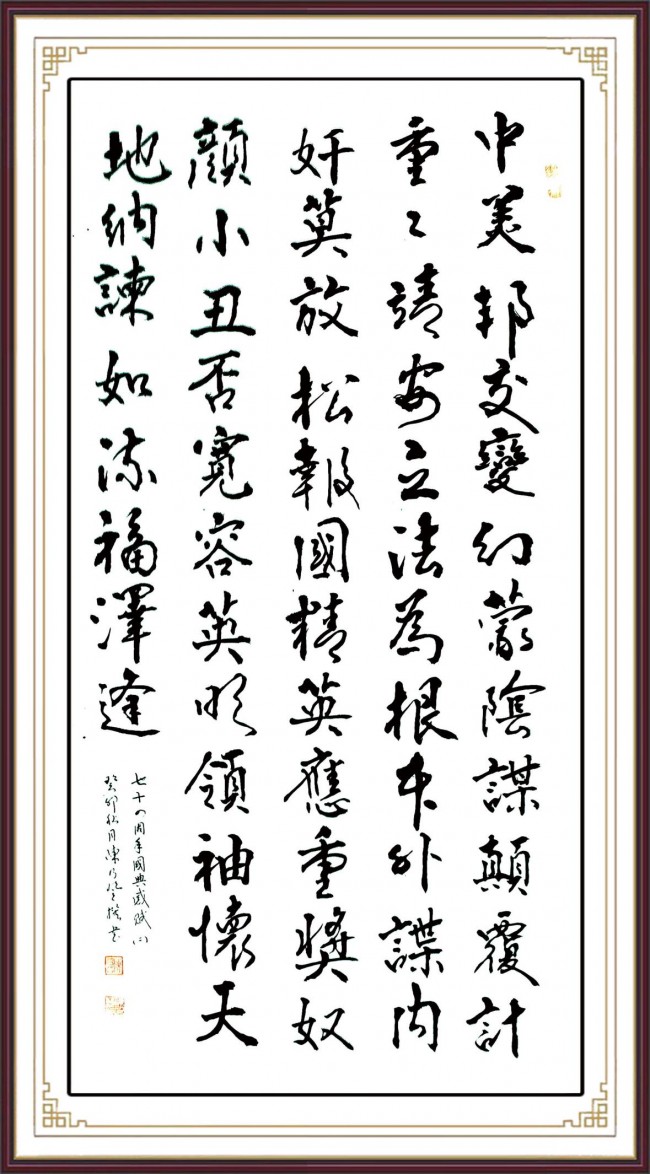 中美邦交變幻蒙陰謀顛覆計
重〻靖安立法為根本外諜内
奸莫放松報國精英應重獎奴
顏小丑否寬容英明領袖懷天
地納諫如流福澤逢
七十四周年國典感賦(二)
癸卯秋月陳乃撰书